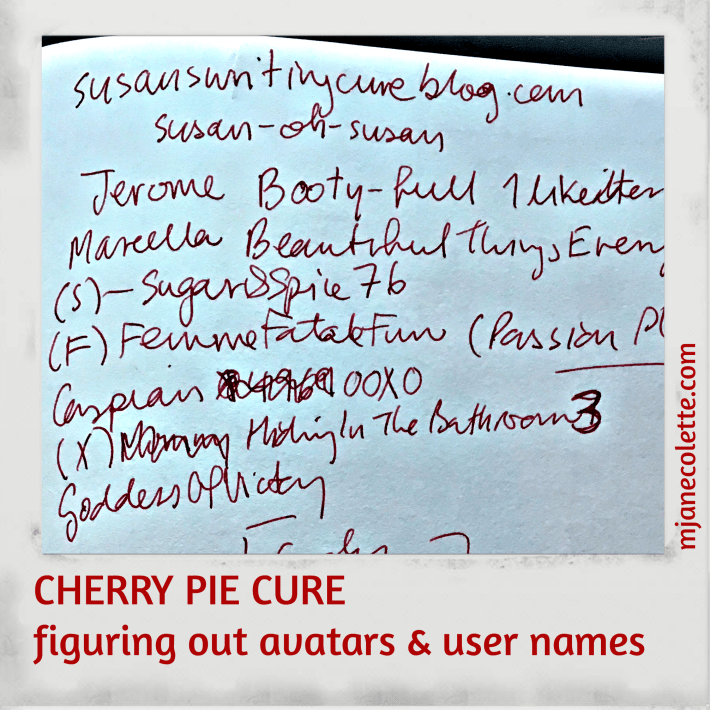 susanswritingcureblog.com
susan-oh-susan
Jerome Booty-full
Marcella BeautifulThings
(S)-Sugar&Spice76
(F) FemmeFataleFun (Passion
Caspian OOXO
(X) Mommy HidingInTheBathroom3
GoddessOfVictory
mjanecolette.com
CHERRY PIE CURE
figuring out avatars & user names